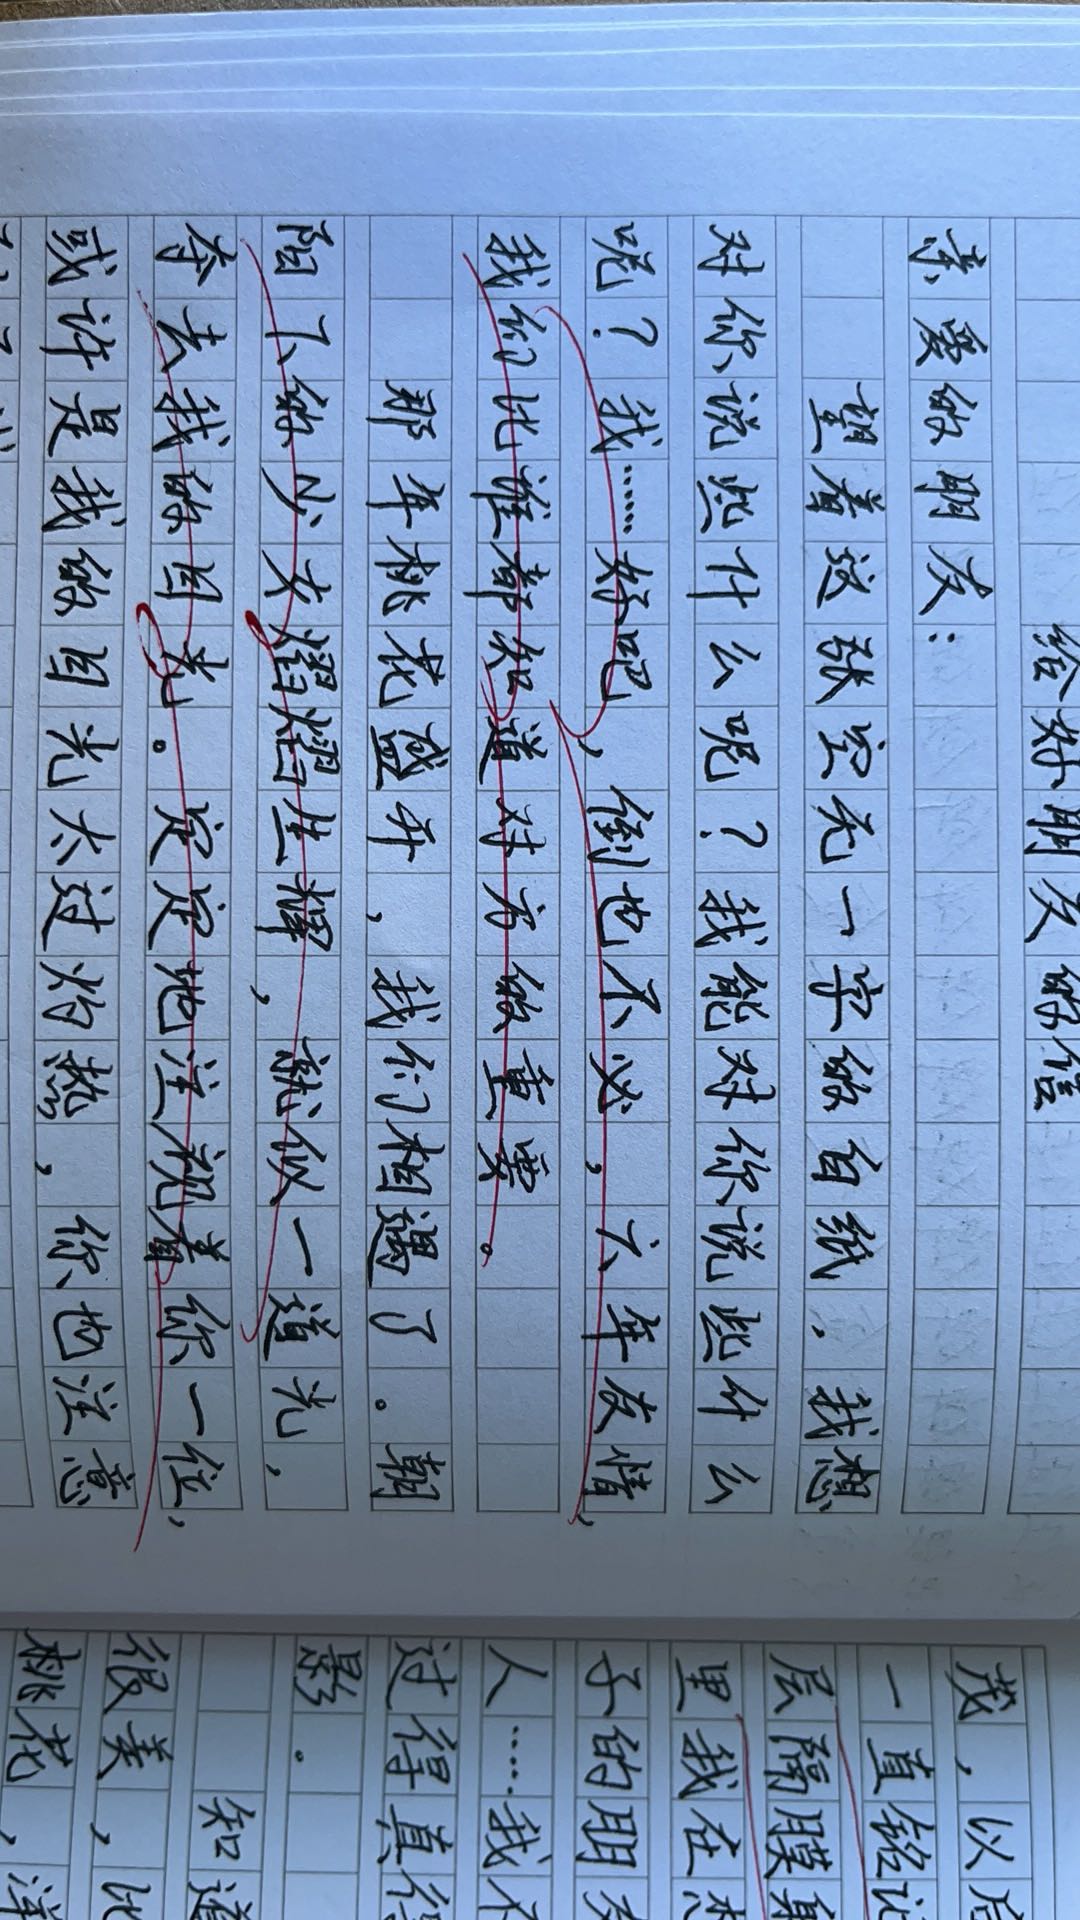 给好朋友的信
亲爱的朋友：
望着这张空无一字的白纸，我想
对你说些什么呢？我能对你说些什么
呢？我……好吧，倒也不必，六年友情，
我们比谁都知道对方的重要。
那年桃花盛开，我们相遇了。朝
阳下的少女熠熠生辉，就似一道光，
夺去我的目光。定定地注视着你一位，
或许是我的目光太过灼热，你也注意
茂，以后
一直铭记
层隔膜
里我在
子的朋友
人……我不
过得真
影。
知道
很美，比
桃花，